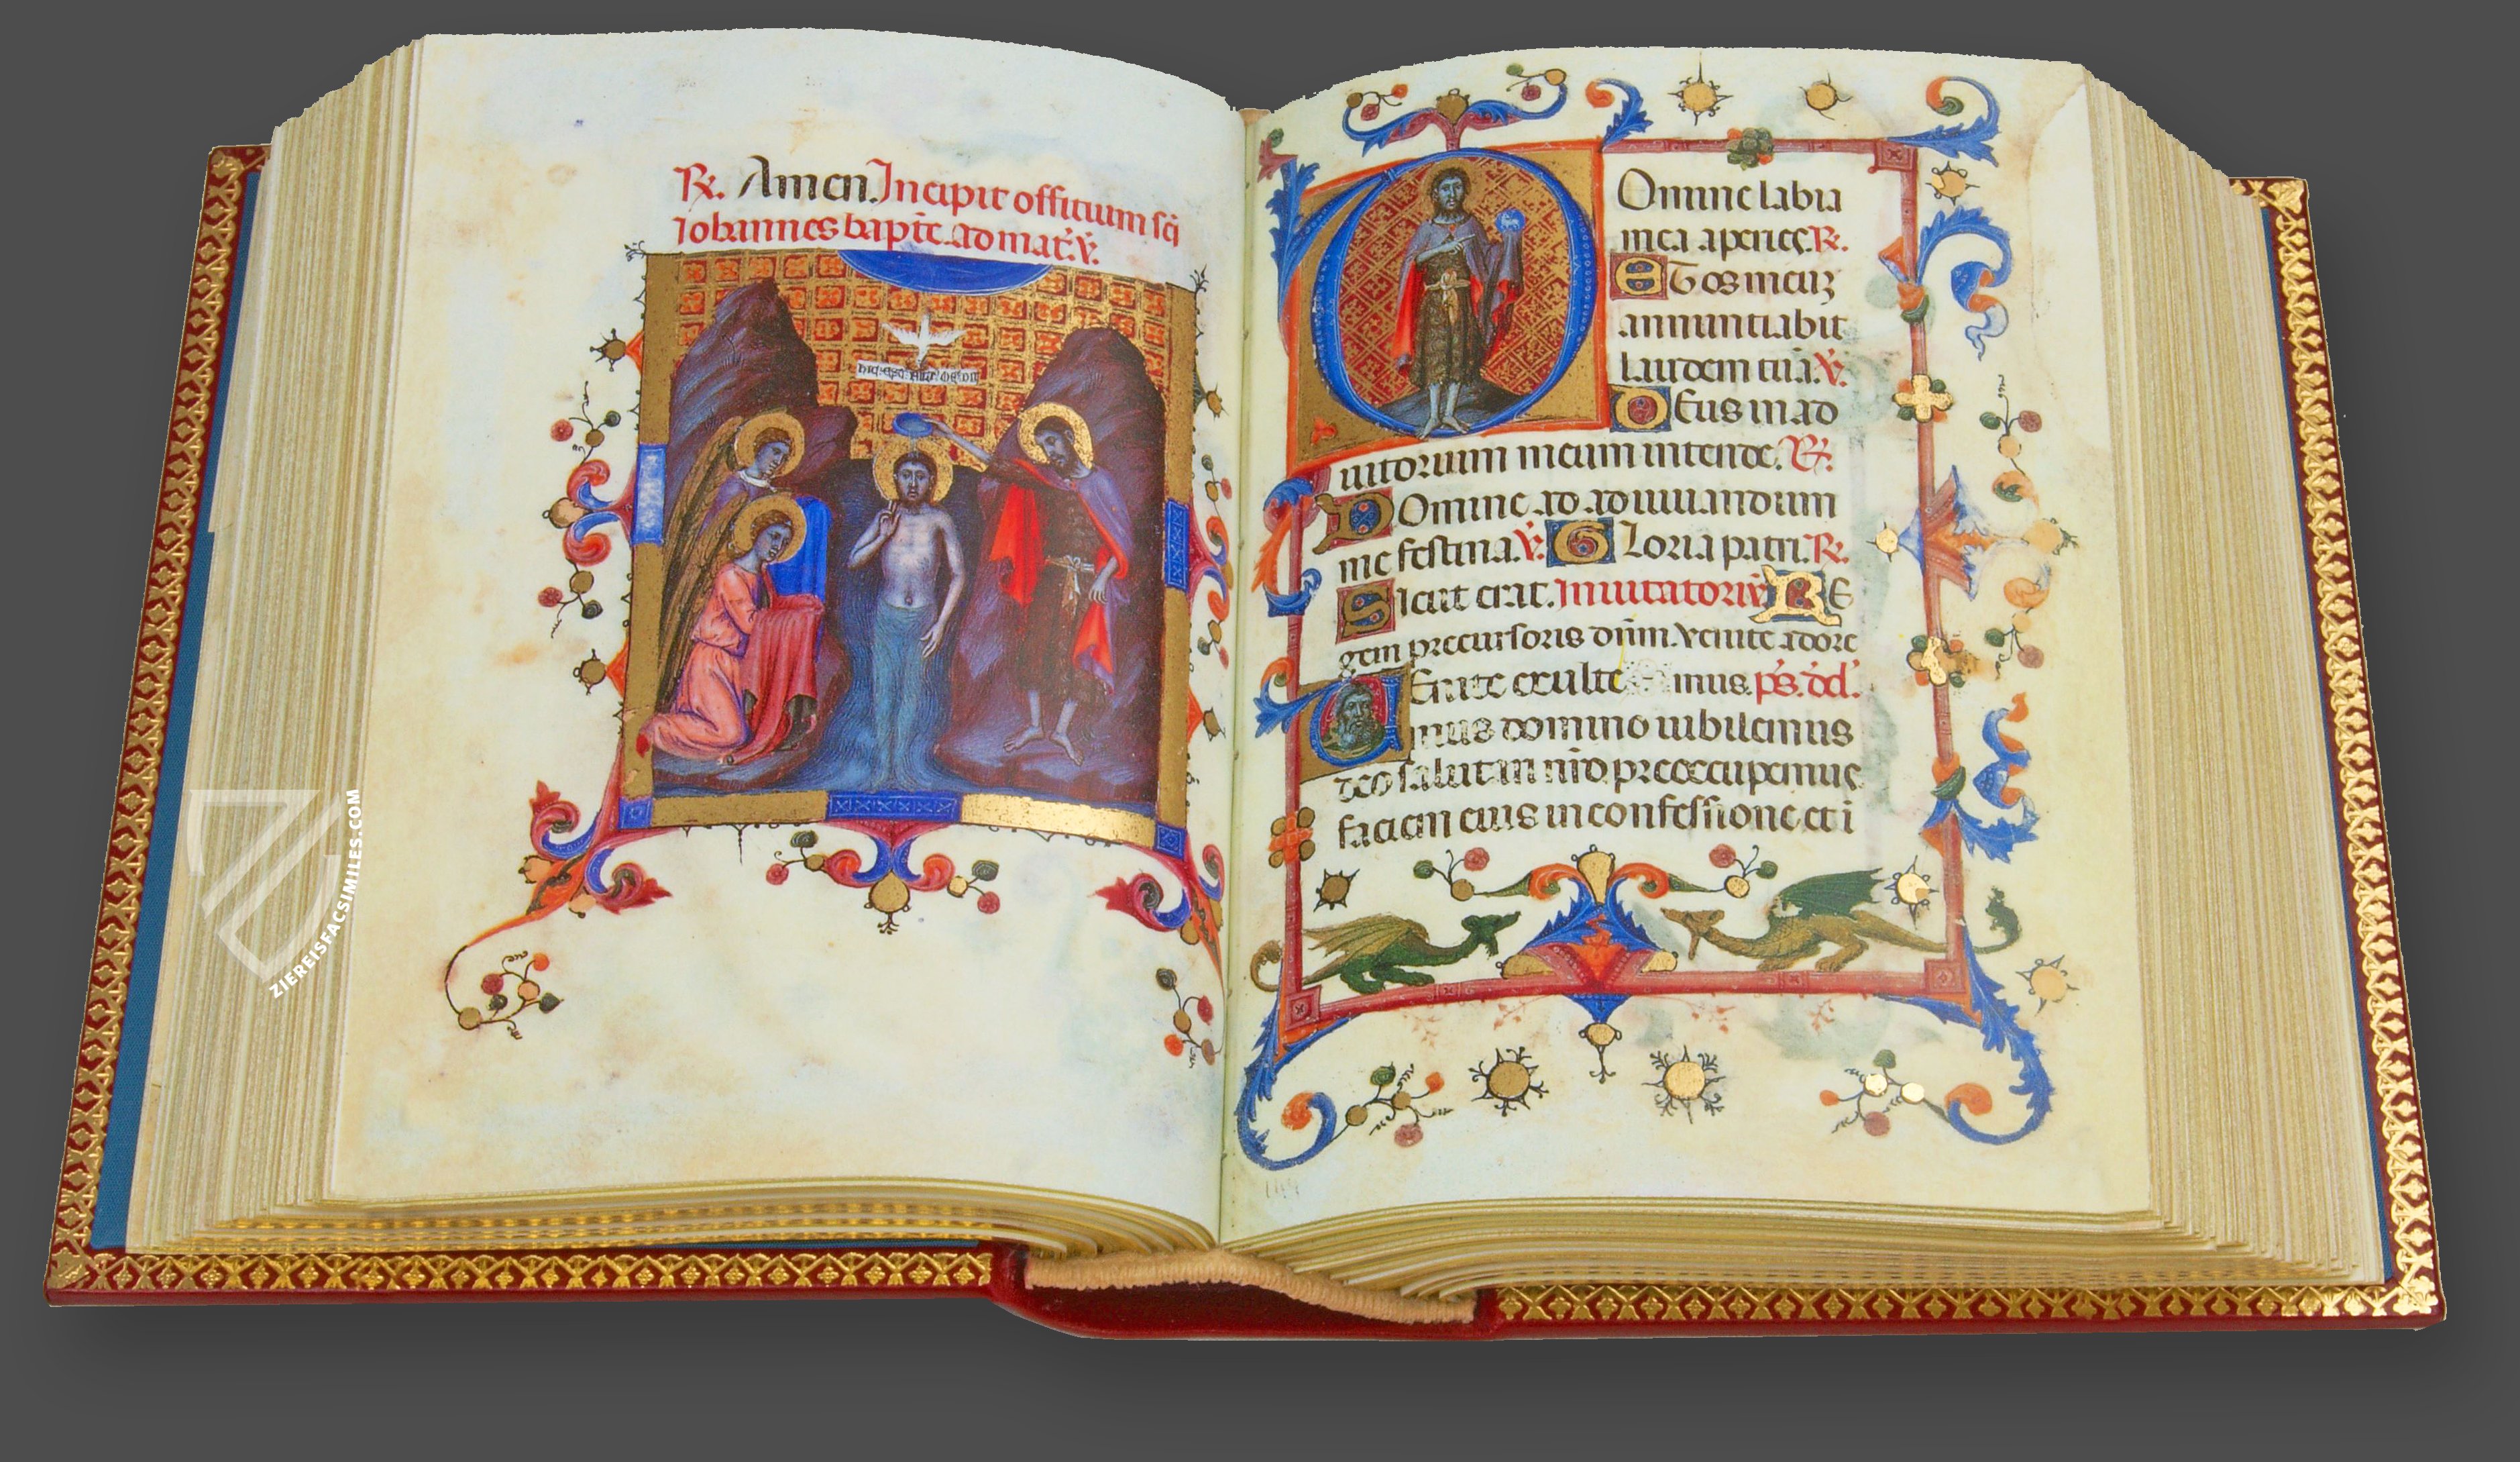 R. Amen. Incipit offitium sci
Iohannes bapte. ad mat. v.
hic est filius meus
Domine labia
mea aperies. R.
Et os meuz
annuntiabit
laudem tua. v.
Deus in ad
iutorium meum intende. R.
Domine ad adiuuandum
me festina. v. Gloria patri. R.
Sicut erat. Inuitatoriu Re
gem precursoris dnm. venite adore
Venite exulte mus. ps. dd.
mus domino iubilemus
deo salutari nro. preoccupemus
faciem eius in confessione et i
144
ZIEREISFACSIMILES.COM